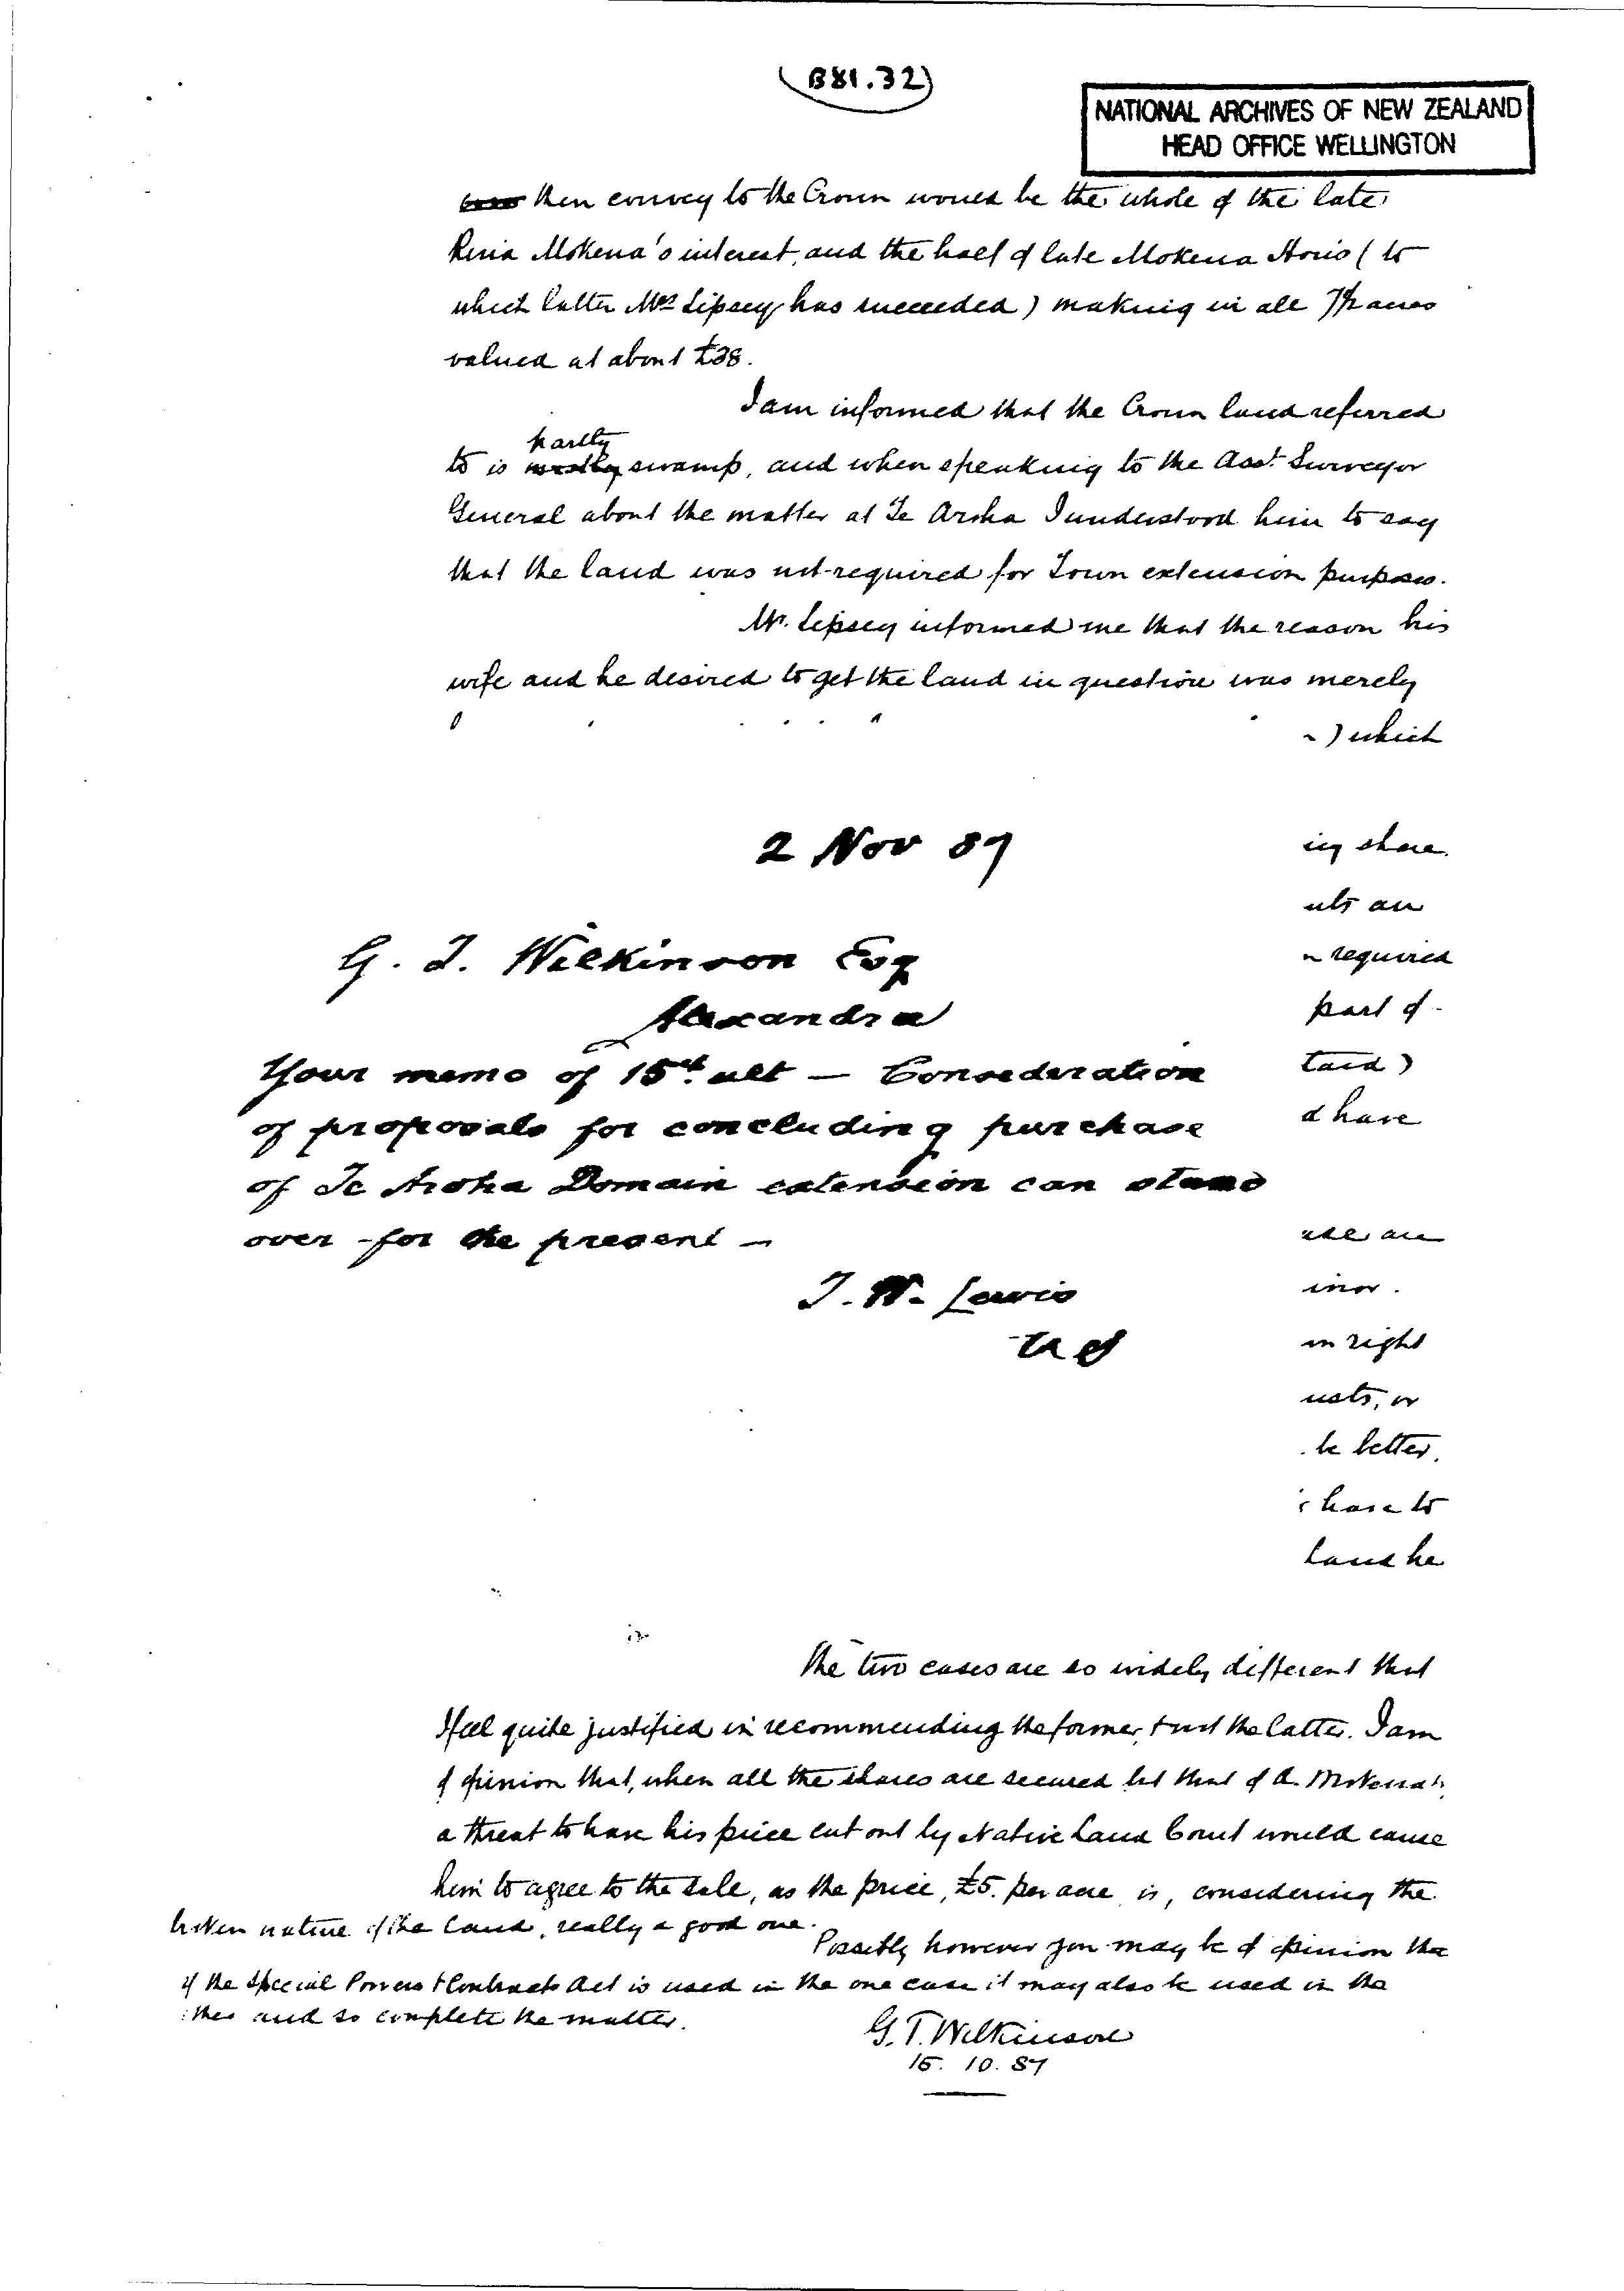 (B81.32)
NATIONAL ARCHIVES OF NEW ZEALAND
HEAD OFFICE WELLINGTON
then convey to the Crown would be the whole of the late
Rina Mokena's interest, and the half of late Mokena Houis (to
which latter Mrs Lipsey has succeeded) making in all 7½ acres
valued at about £38.
I am informed that the Crown land referred
partly
to is swamp, and when speaking to the Asst. Surveyor
General about the matter at Te Aroha I understood him to say
that the land was not required for Town extension purposes.
Mr. Lipsey informed me that the reason his
wife and he desired to get the land in question was merely
) which
2 Nov 89
ing share.
G. T. Wilkinson Esq
required
Alexandra
part of
Your memo of 15th ult — Consideration
of proposals for concluding purchase
d have
of Te Aroha Domain extension can stand
over for the present —
T. W. Lewis
in right
be better.
have to
Land he
The two cases are so widely different that
I feel quite justified in recommending the former, & not the latter. I am
of opinion that, when all the shares are secured but that of A. Mokena's,
a threat to have his piece cut out by Native Land Court would cause
him to agree to the sale, as the price, £5. per acre is, considering the
broken nature of the land, really a good one.
Possibly however you may be of opinion the
if the Special Powers & Contracts Act is used in the one case it may also be used in the
ther and so complete the matter.
G. T. Wilkinson
15. 10. 89